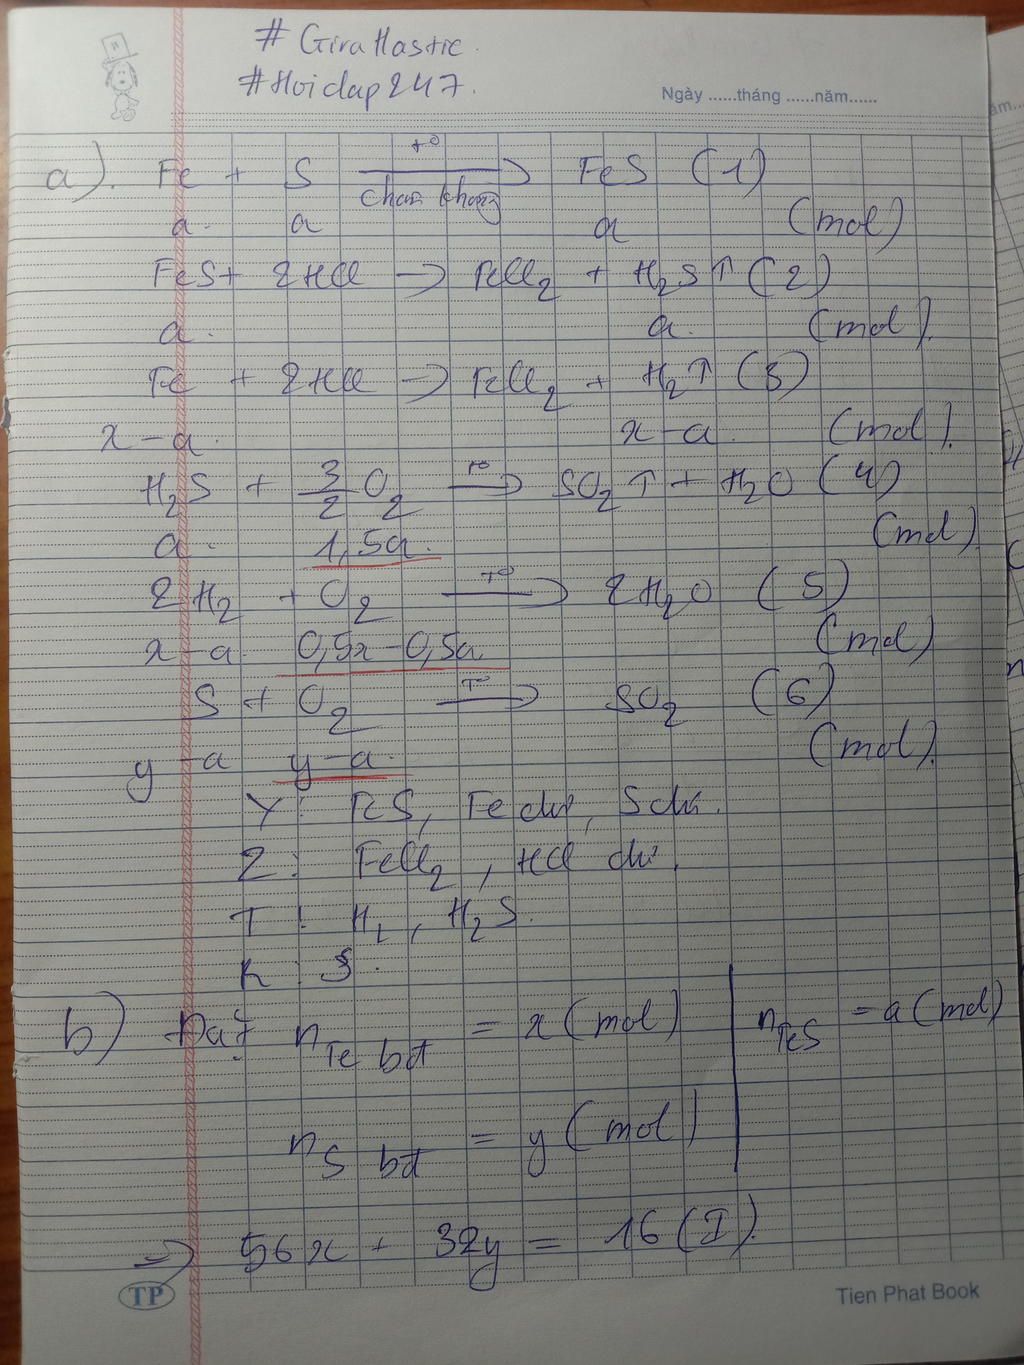 # Girattastic.
#Hoidap247.
Ngày ......tháng ......năm......
a). Fe + S —t°→ FeS (1)
chân không
a. a a (mol)
FeS + 2HCl → FeCl₂ + H₂S↑ (2)
a. a. (mol).
Fe + 2HCl → FeCl₂ + H₂↑ (3)
x-a. x-a. (mol).
H₂S + 3/2 O₂ —t°→ SO₂↑ + H₂O (4)
a. 1,5a. (mol)
2H₂ + O₂ —t°→ 2H₂O (5)
x-a 0,5x-0,5a (mol)
S + O₂ —t°→ SO₂ (6)
y-a y-a. (mol).
Y: FeS, Fe dư, S dư.
Z: FeCl₂, HCl dư.
T: H₂, H₂S.
R: S.
b) Đặt n Fe bđ = x (mol) n FeS = a (mol)
n S bđ = y (mol)
=> 56x + 32y = 16 (I).
TP
Tien Phat Book